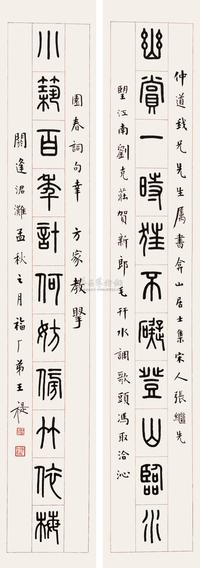 仲道兄先生屬書弇山居士集宋人張繼先
幽賞一時不礙登山臨水
望江南劉克莊賀新郎毛幵水調歌頭馮取洽沁
園春詞句幸 方家教
小築百年計何妨傍竹依梅
閼逢涒灘孟秋之月福厂弟王禔